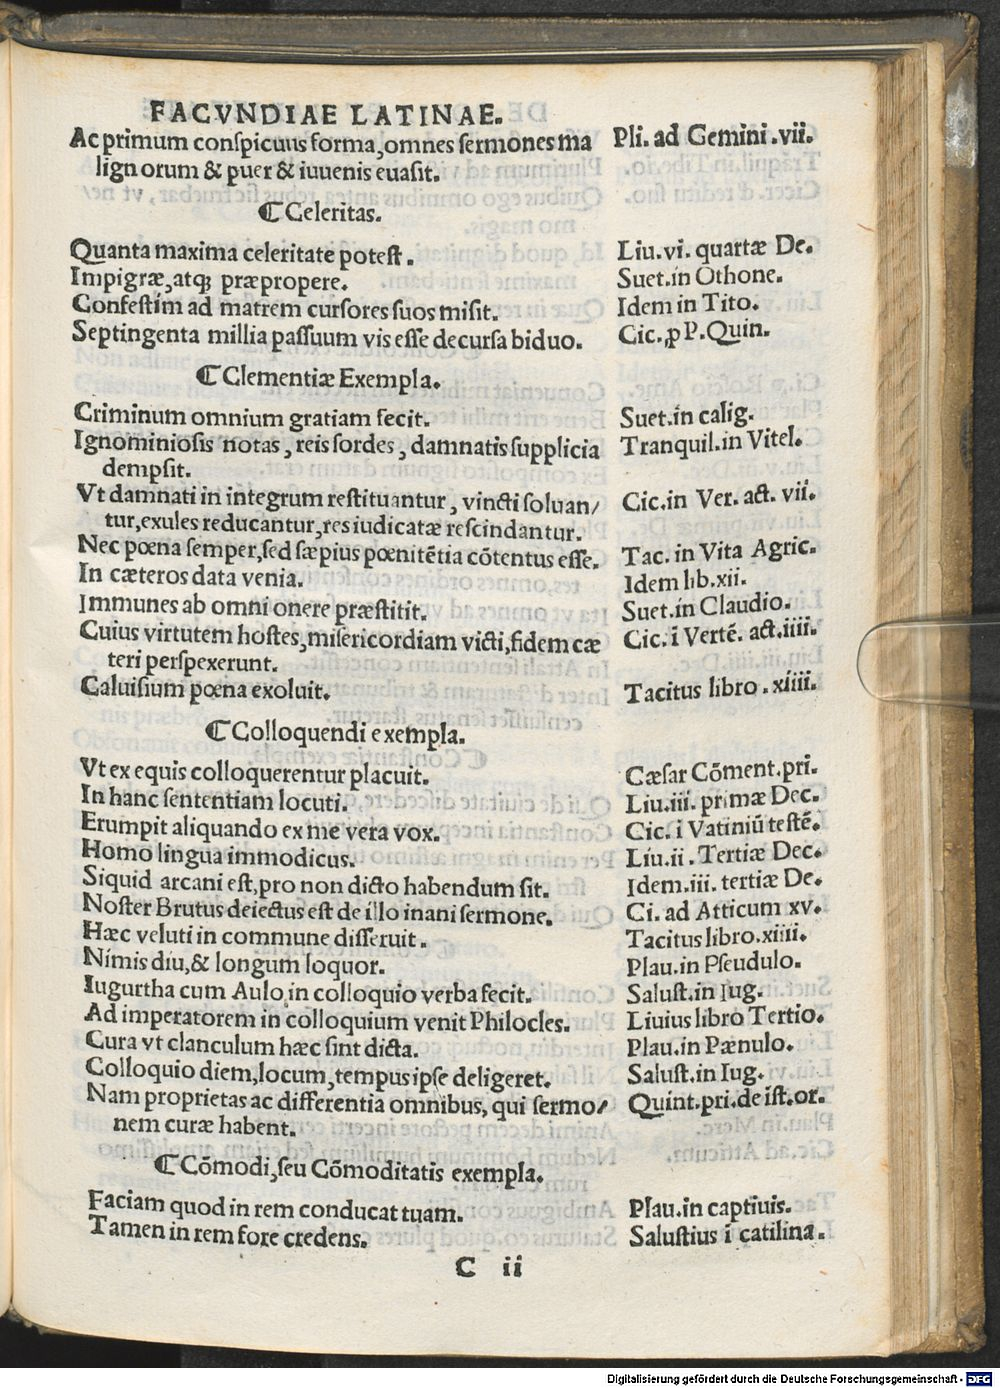 FACVNDIAE LATINAE.
Ac primum conſpicuus forma, omnes ſermones ma Pli. ad Gemini .vii.
lignorum & puer & iuuenis euaſit.
¶ Celeritas.
Quanta maxima celeritate poteſt . Liu. vi. quartæ De.
Impigræ, atq; præpropere. Suet. in Othone.
Confeſtim ad matrem curſores ſuos miſit. Idem in Tito.
Septingenta millia paſſuum vis eſſe decurſa biduo. Cic. ꝓ P. Quin.
¶ Clementiæ Exempla.
Criminum omnium gratiam fecit. Suet. in calig.
Ignominioſis notas, reis ſordes, damnatis ſupplicia Tranquil. in Vitel.
dempſit.
Vt damnati in integrum reſtituantur, vincti ſoluan/ Cic. in Ver. act. vii.
tur, exules reducantur, res iudicatæ reſcindantur.
Nec pœna ſemper, ſed ſæpius pœnitētia cōtentus eſſe. Tac. in Vita Agric.
In cæteros data venia. Idem lib. xii.
Immunes ab omni onere præſtitit. Suet. in Claudio.
Cuius virtutem hoſtes, miſericordiam victi, fidem cæ Cic. ī Vertē. act. iiii.
teri perſpexerunt.
Caluiſium pœna exoluit. Tacitus libro .xiiii.
¶ Colloquendi exempla.
Vt ex equis colloquerentur placuit. Cæſar Cōment. pri.
In hanc ſententiam locuti. Liu. iii. primæ Dec.
Erumpit aliquando ex me vera vox. Cic. ī Vatiniū teſtē.
Homo lingua immodicus. Liu. ii. Tertiæ Dec.
Siquid arcani eſt, pro non dicto habendum ſit. Idem. iii. tertiæ De.
Noſter Brutus deiectus eſt de illo inani ſermone. Ci. ad Atticum xv.
Hæc veluti in commune diſſeruit . Tacitus libro. xiiii.
Nimis diu, & longum loquor. Plau. in Pſeudulo.
Iugurtha cum Aulo in colloquio verba fecit. Saluſt. in Iug.
Ad imperatorem in colloquium venit Philocles. Liuius libro Tertio.
Cura vt clanculum hæc ſint dicta. Plau. in Pænulo.
Colloquio diem, locum, tempus ipſe deligeret. Saluſt. in Iug.
Nam proprietas ac differentia omnibus, qui ſermo/ Quint. pri. de iſt. or.
nem curæ habent.
¶ Cōmodi, ſeu Cōmoditatis exempla.
Faciam quod in rem conducat tuam. Plau. in captiuis.
Tamen in rem fore credens. Saluſtius ī catilina.
C ii
Digitalisierung gefördert durch die Deutsche Forschungsgemeinschaft - DFG